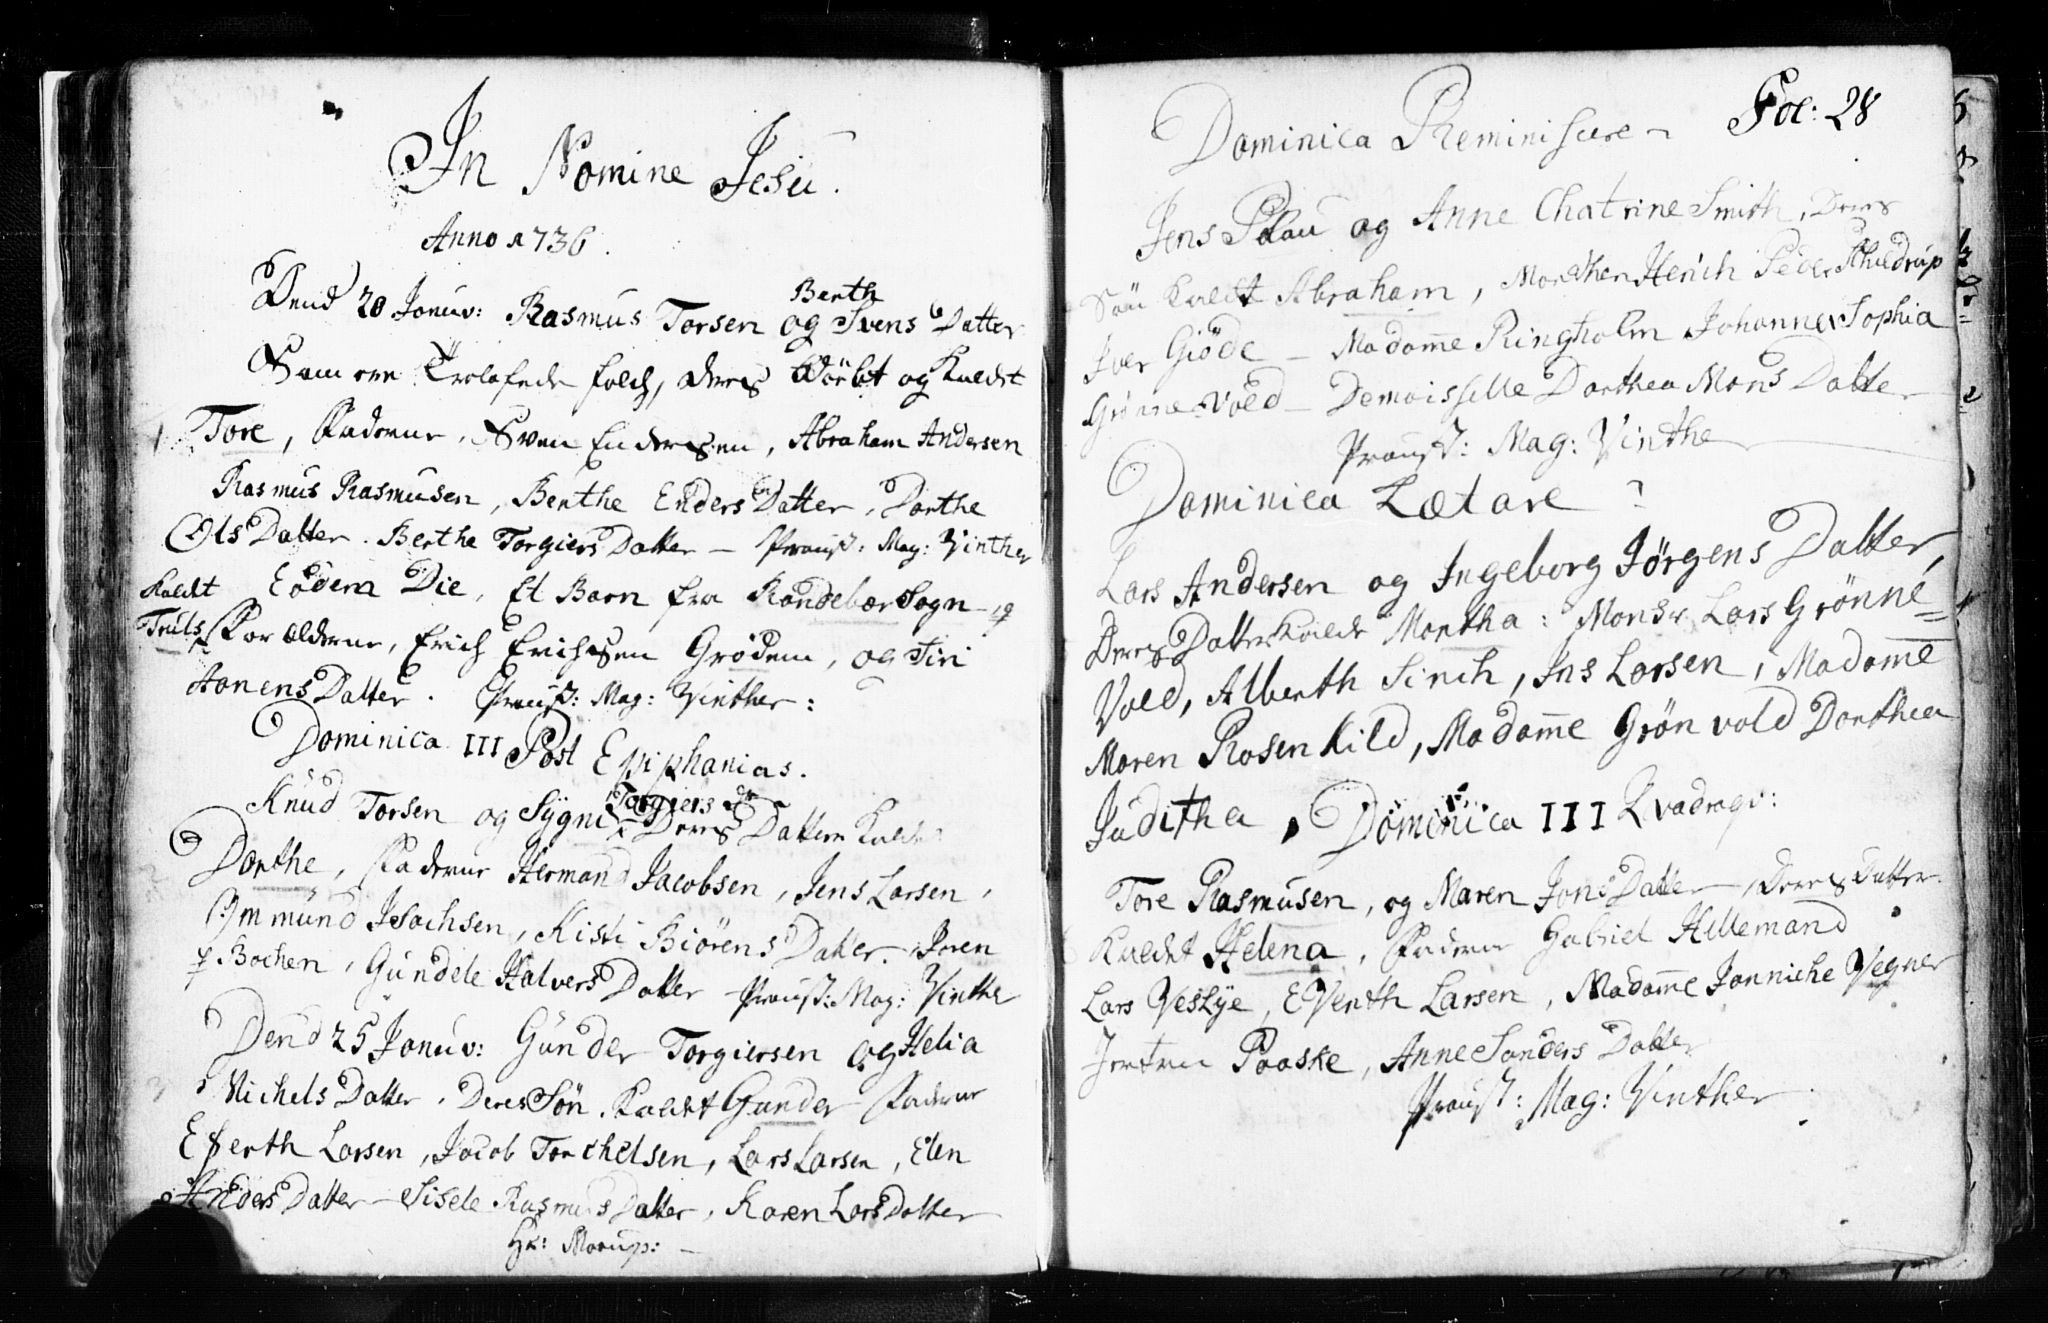 In Nomine Jesu.
Anno 1736.
Dend 20 Januv: Rasmus Torsen og Berth Svens Datter
Som ere Trolofede folch, deres Dôebt og Kaldet
Tore, Fadderne, Sven Endersen, Abraham Andersen
Rasmus Rasmusen, Berthe Enders Datter, Dorthe
Ols Datter. Berthe Torgiers Datter – Proust: Mag: Vinther
Eodem Die, Et Barn fra Randebær Sogn
Kaldt
Truls
For ældrene, Erich Erichsen Grødem, og Siri
Aanens Datter. Proust: Mag: Vinther:
Dominica III Post Epiphanias.
Knud Torsen og Sygni Torgiers Dr Deres Datter Kaldet
Dorthe, Fadderne Hermand Jacobsen, Jens Larsen,
Ommund Isachsen, Kisti Biørens Datter. Joren
Bochen, Gundele Halvers Datter Proust: Mag: Vinthe
Dend 25 Januv: Gunder Torgiersen og Helia
Michels Datter. Deres Søn. Kaldet Gunder Fadderne
Efferth Larsen, Jacob Torchelsen, Lars Larsen, Elen
Anders Datter – Sisele Rasmus Datter, Karen Lars Datter
Hr: Morup: –
Fol: 28
Dominica Reminiscere
Jens Blau og Anne Chatrine Smith, Deres
Søn Kaldet Abraham, Peder Schieldrup
Iver Giøde – Madame Ringholm Johanne Sophia
Grønne Vold – Demoisselle Dorthea Mons Datter
Proust: Mag: Vinthe
Dominica Lætare
Lars Andersen og Ingeborg Jørgens Datter,
Deres Datter Kaldet Martha: Monsr Lars Grønne=
Vold, Alberth Sinch, Jns Larsen, Madame
Maren Rosenkild, Madame Grønvold Dorthea
Juditha, Dominica III Qvadrags:
Tore Rasmusen, og Maren Jons Datter, Deres Datter
Kaldet Helena, Faddere Gabriel Hillemand
Lars Veslye, Everth Larsen, Madame Janniche Vegner
Paaske, Anne Sanders Datter
Proust: Mag: Vinther